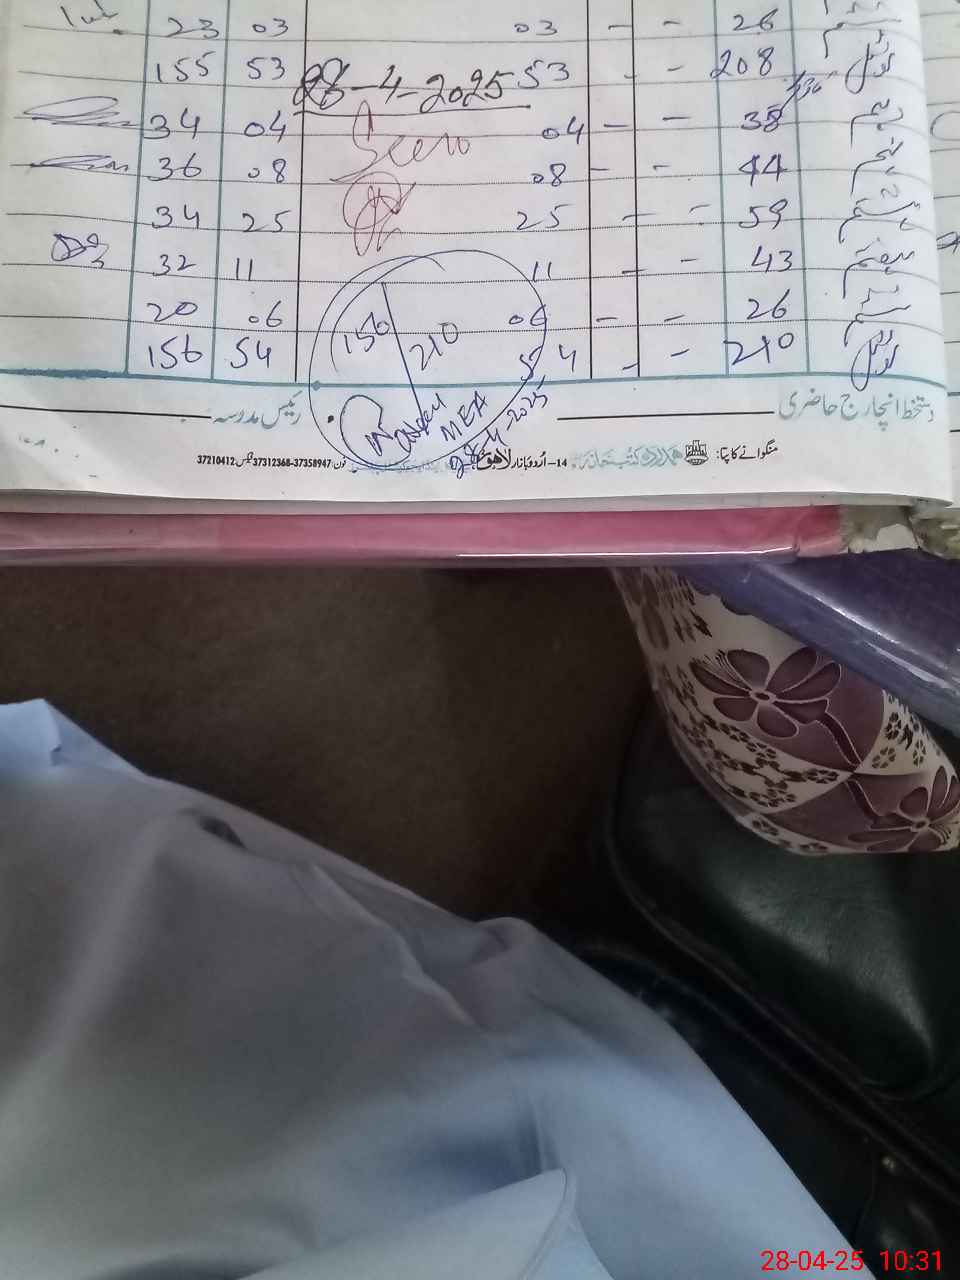 23 03 03 - - 26
155 53 53 - - 208 ٹوٹل
28-4-2025
34 04 04 - - 38 دہم
36 08 Seen 08 - - 44 نہم
34 25 25 - - 59 ہشتم
32 11 11 - - 43 ہفتم
20 06 06 - - 26 ششم
156 54 54 - - 210 ٹوٹل
156 210
MEA
28-4-2025
دستخط انچارج حاضری رئیس مدرسہ
منگوانے کا پتا: ہمدرد کتب خانہ 14-اُردو بازار لاہور فون: 37358947-37312368 فیکس: 37210412
28-04-25 10:31